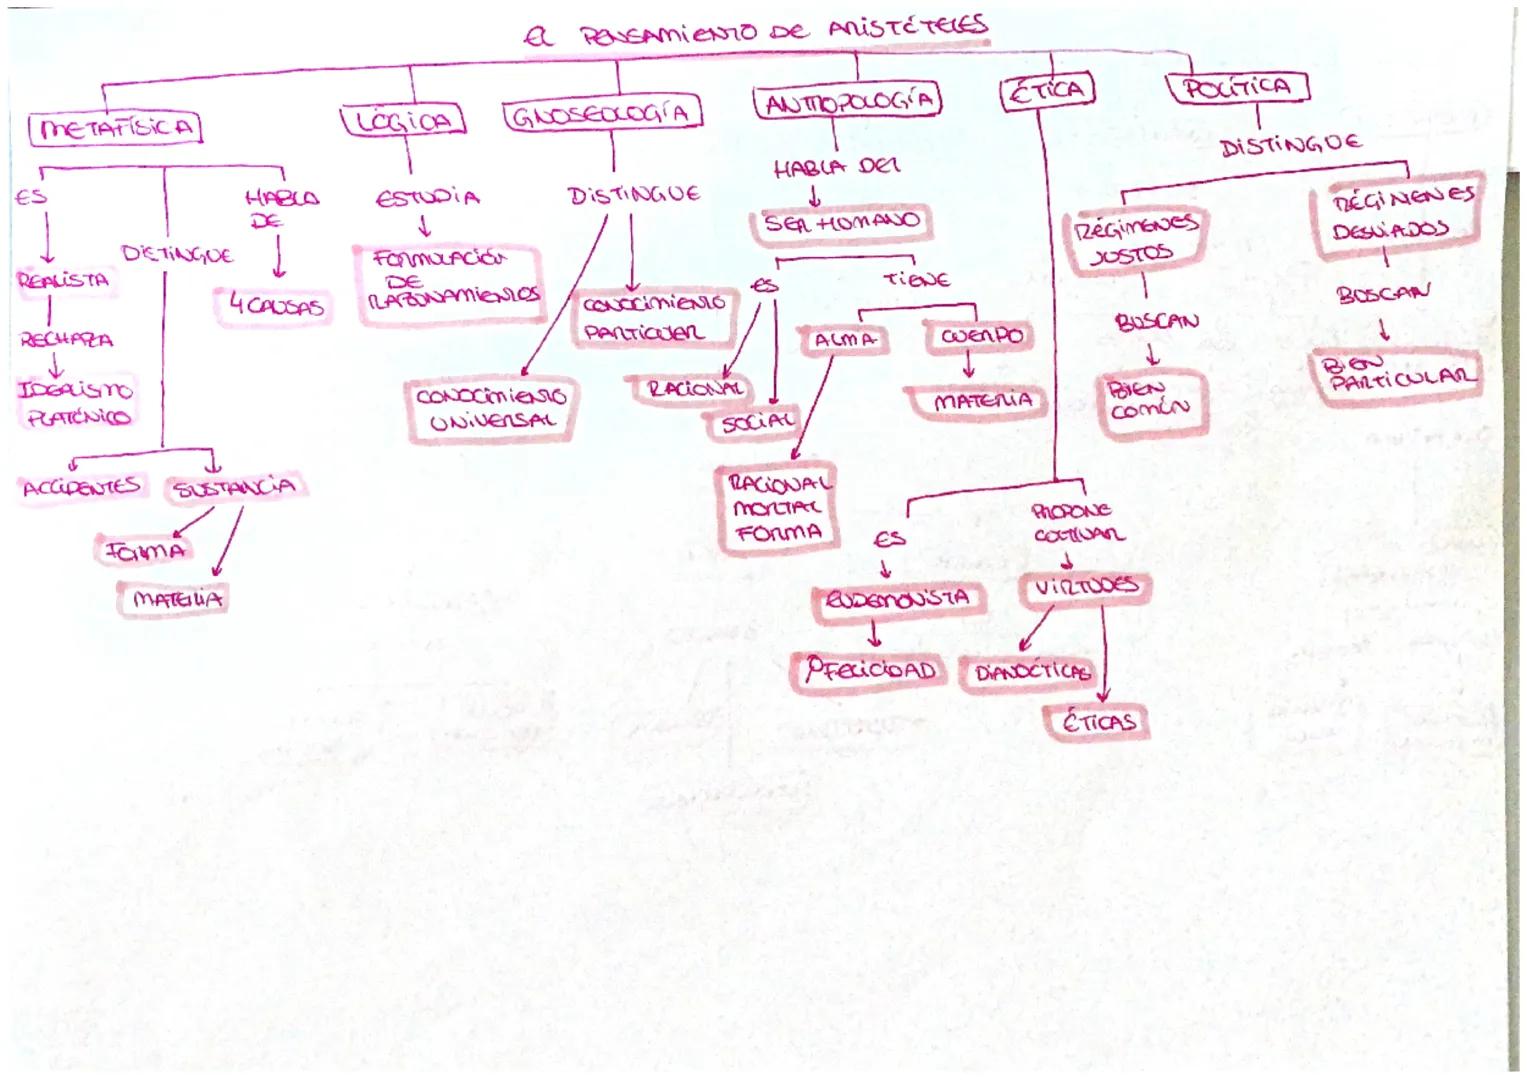 El PENSAMIENTO DE ARISTÓTELES
METAFÍSICA
ES
REALISTA
RECHAZA
IDEALISMO
PLATÓNICO
DISTINGUE
ACCIDENTES
SUSTANCIA
FORMA
MATERIA
HABLA
DE
4 CAUSAS
LÓGICA
ESTUDIA
FORMULACIÓN
DE
RAZONAMIENTOS
GNOSEOLOGÍA
DISTINGUE
CONOCIMIENTO
UNIVERSAL
CONOCIMIENTO
PARTICULAR
ANTROPOLOGÍA
HABLA DEL
SER HUMANO
ES
RACIONAL
SOCIAL
TIENE
ALMA
RACIONAL
MORTAL
FORMA
CUERPO
MATERIA
ÉTICA
ES
EUDEMONISTA
FELICIDAD
PROPONE
CULTIVAR
VIRTUDES
DIANOÉTICAS
ÉTICAS
POLÍTICA
DISTINGUE
RÉGIMENES
JUSTOS
BUSCAN
BIEN
COMÚN
RÉGINENES
DESVIADOS
BUSCAN
BIEN
PARTICULAR